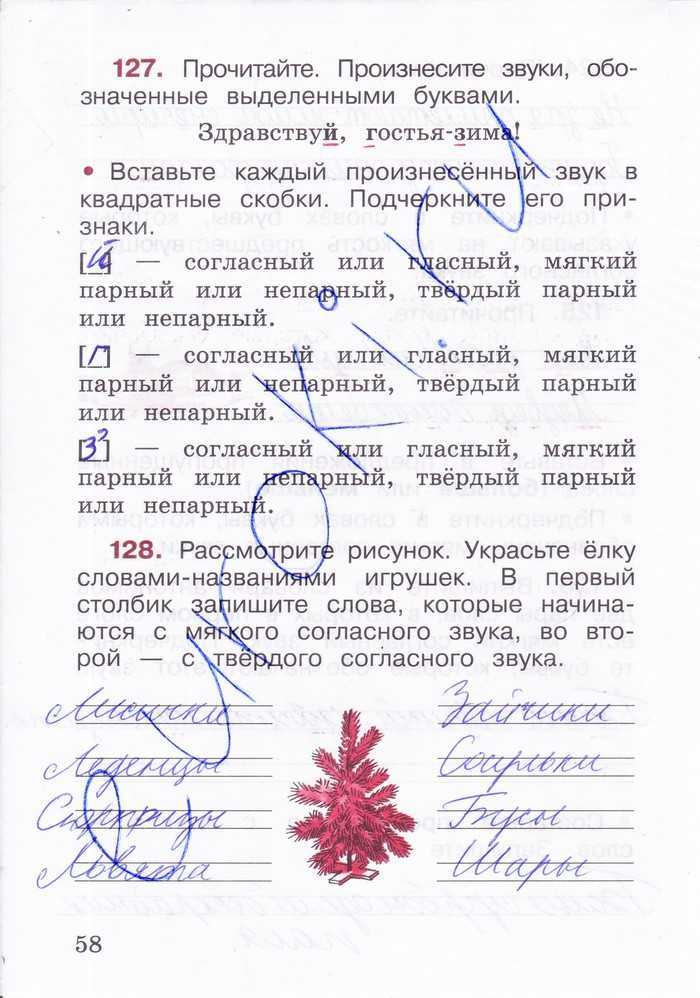 127. Прочитайте. Произнесите звуки, обо-
значенные выделенными буквами.
Здравствуй, гостья-зима!
• Вставьте каждый произнесённый звук в
квадратные скобки. Подчеркните его при-
знаки.
[й'] — согласный или гласный, мягкий
парный или непарный, твёрдый парный
или непарный.
[г] — согласный или гласный, мягкий
парный или непарный, твёрдый парный
или непарный.
[з'] — согласный или гласный, мягкий
парный или непарный, твёрдый парный
или непарный.
128. Рассмотрите рисунок. Украсьте ёлку
словами-названиями игрушек. В первый
столбик запишите слова, которые начина-
ются с мягкого согласного звука, во вто-
рой — с твёрдого согласного звука.
Лисички Зайчики
Леденцы Сосульки
Сюрпризы Бусы
Шары
58